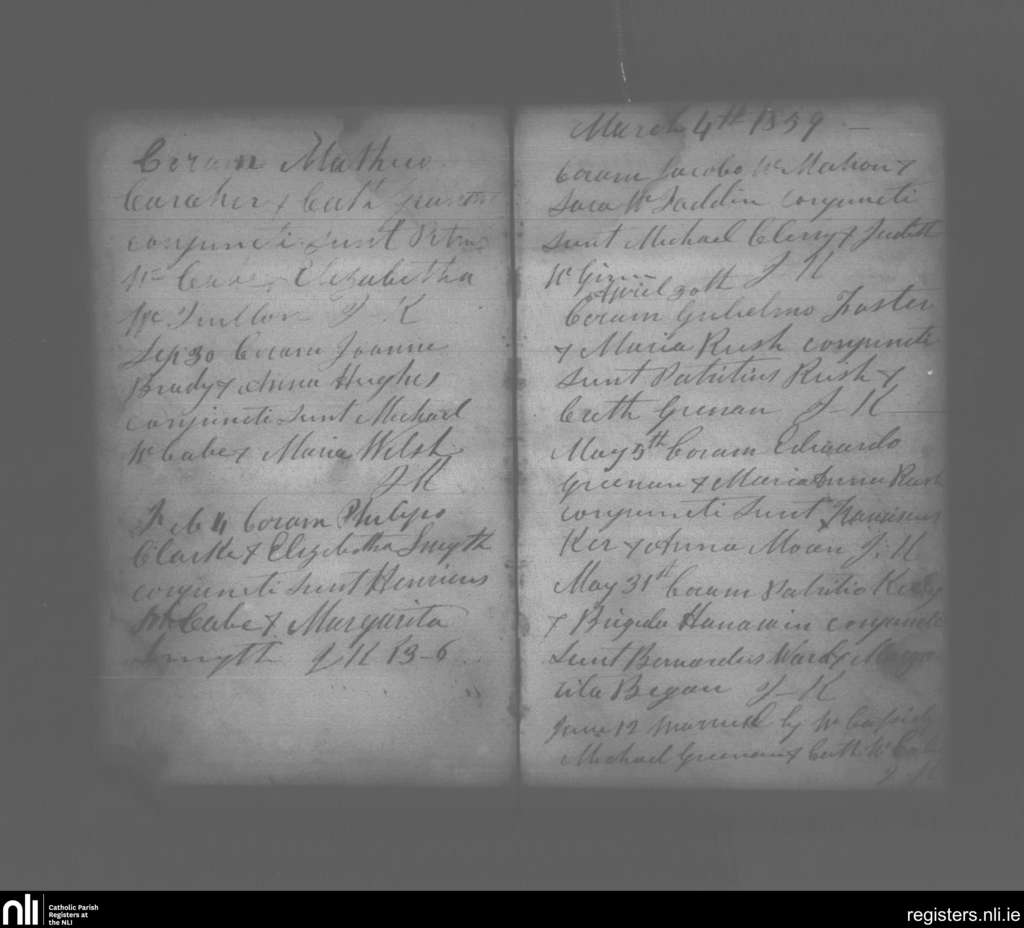 Coram Matheo
Caraher & Cath
conjuncti sunt Petrus
Mc Cabe & Elizabetha
Mc Quillon J-K
Sep 30 Coram Joanne
Brady & Anna Hughes
conjuncti sunt Michael
Mc Cabe & Maria Welsh
J K
Feb 4 Coram Philipo
Clarke & Elizabetha Smyth
conjuncti sunt Henricus
Mc Cabe & Margarita
Smyth J K 13-6
March 4th 1859
Coram Jacobo Mc Mahon &
Sara Mc Faddin conjuncti
sunt Michael Clery & Judith
Mc Ginn J K
April 30th
Coram Gulielmo Foster
& Maria Rush conjuncti
sunt Patritius Rush &
Cath Grenan J-K
May 5th Coram Eduardo
Greenan & Maria Anna Rush
conjuncti sunt Franciscus
Ker & Anna Moan J. K
May 31st Coram Patritio
& Brigida conjuncti
sunt Bernardus Ward & Marga
rita Began J-K
June 12 married by Mc Cassidy
Michael Greenan & Cath Mc
J. K
nli
Catholic Parish
Registers at
the NLI
registers.nli.ie